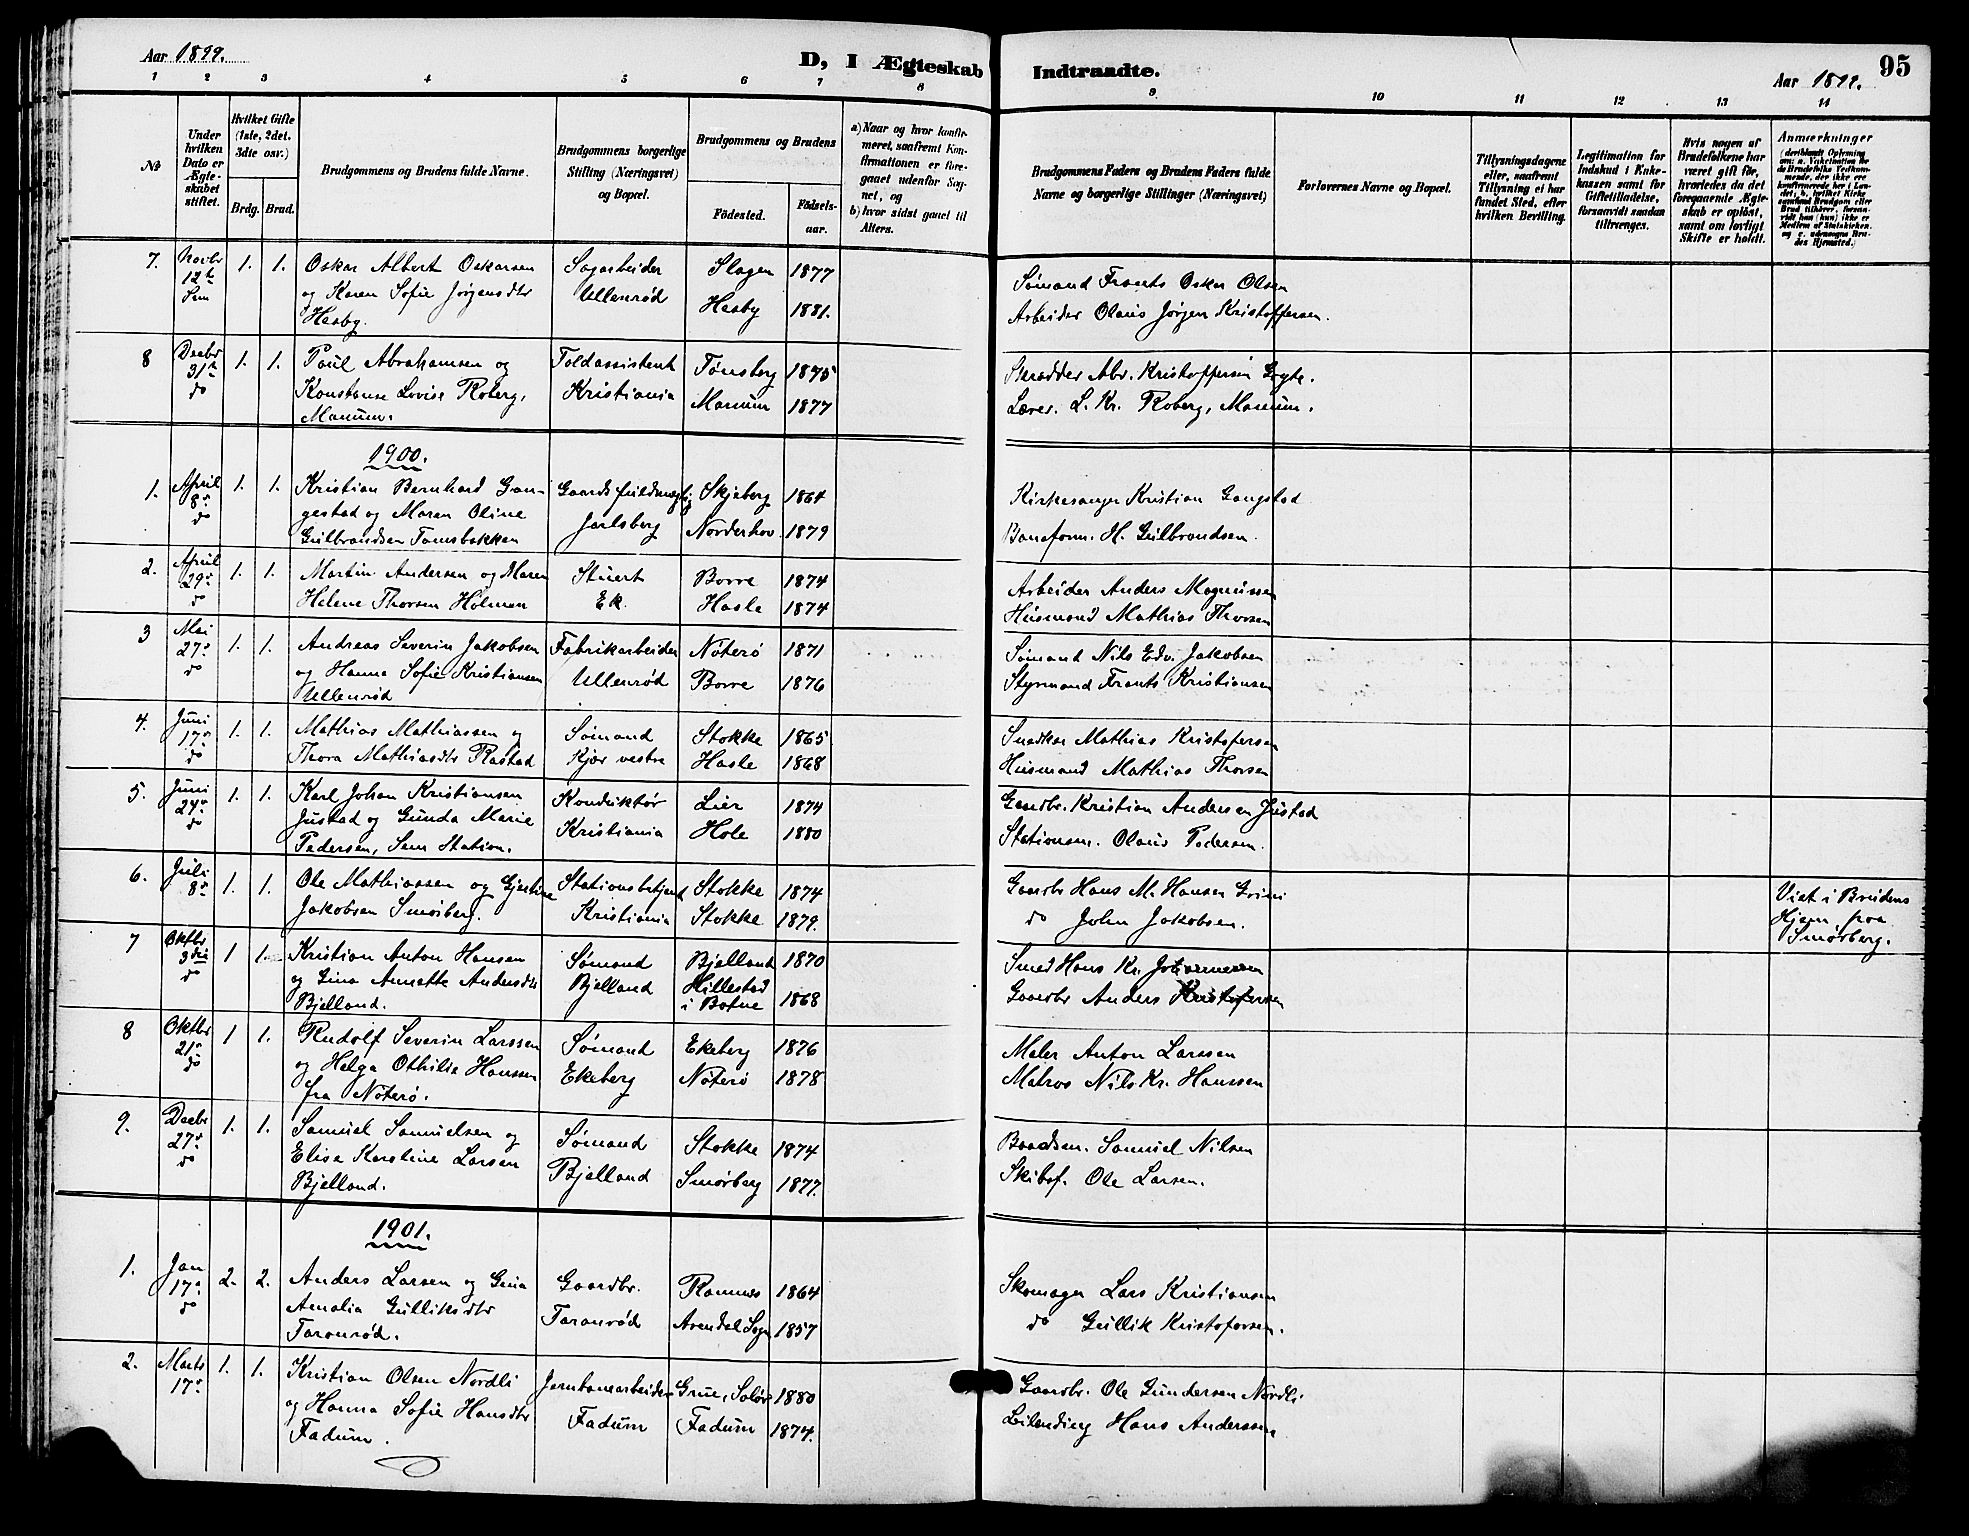 Aar 1899.
D, I Ægteskab Indtraadte.
95
Aar 1899.
1 2 3 4 5 6 7 8 9 10 11 12 13 14
No
Under hvilken Dato er Ægteskabet stiftet.
Hvilket Gifte (1ste, 2det, 3dte osv.)
Brdg. Brud.
Brudgommens og Brudens fulde Navne.
Brudgommens borgerlige Stilling (Næringsvei) og Bopæl.
Brudgommens og Brudens
Fødested.
Fødsels-aar.
a) Naar og hvor konfirmeret, saafremt Konfirmationen er foregaaet udenfor Sognet, og
b) hvor sidst gaaet til Alters.
Brudgommens Faders og Brudens Faders fulde Navne og borgerlige Stillinger (Næringsvei)
Forlovernes Navne og Bopæl.
Tillysningsdagene eller, saafremt Tillysning ei har fundet Sted, efter hvilken Bevilling.
Legitimation for Indskud i Enkekassen samt for Giftetilladelse, forsaavidt saadan tiltrænges.
Hvis nogen af Brudefolkene har været gift før, hvorledes da det foregaaende Ægteskab er opløst, samt om lovligt Skifte er holdt.
Anmærkninger
7. Novbr 12te Sem 1. 1. Oskar Albert Oskarsen Sagarbeider Slagen 1877 Sømand Frants Oskar Olsen
og Karen Sofie Jørgensdtr Ullenrød Hesby 1881. Arbeider Olaus Jørgen Kristoffersen.
Hesby.
8 Decbr 31te do 1. 1. Paul Abrahamsen og Toldassistent Tønsberg 1875 Skrædder Abr. Kristoffersen
Konstanse Lovise Roberg, Kristiania Manum 1877 Lærer. L. Kr. Roberg, Manum.
Manum.
1900.
1. April 8de do 1. 1. Kristian Bernhard Gan- Gaardsfuldmægtig Skjeberg 1864 Kirkesanger Kristian Gangstad
gestad og Maren Oline Jarlsberg Norderhov 1879 Baneform. H. Gulbrandsen.
Gulbrandsen Tomsbakken
2. April 29de do 1. 1. Martin Andersen og Maren Stuert Borre 1874 Arbeider Anders Magnussen
Helene Thorsen Holmen Ek. Hasle 1874 Husmand Mathias Thorsen
3 Mai 27de do 1. 1. Andreas Severin Jakobsen Fabrikarbeider Nøterø 1871 Sømand Nils Edv. Jakobsen
og Hanna Sofie Kristiansen Ullenrød Borre 1876 Styrmand Frants Kristiansen
Ullenrød
4. Juni 17de do 1. 1. Mathias Mathiassen og Sømand Stokke 1865 Snedker Mathias Kristofersen
Thora Mathiasdtr Rastad Kjær vestre Hasle 1868 Husmand Mathias Thorsen
5. Juni 24de do 1. 1. Karl Johan Kristiansen Konduktør Lier 1874 Gaardbr. Kristian Andersen Justad
Justad og Gunda Marie Kristiania Hole 1880 Stationsm. Olaus Pedersen.
Pedersen, Sem Station.
6. Juli 8de 1. 1. Ole Mathiassen og Gjertine Stationsbetjent Stokke 1874 Gaardbr Hans M. Hansen
Jakobsen Smørberg. Kristiania Stokke 1879. do John Jakobsen.
Viet i Brudens
Hjem paa
Smørberg.
7 Oktbr 3die do 1 1. Kristian Anton Hansen Sømand Bjelland 1870 Smed Hans Kr. Johannessen
og Gina Annette Andersdtr Bjelland Hillestad i Botne 1868 Gaardbr Anders Kristofersen
Bjelland.
8 Oktbr 21de do 1 1. Rudolf Severin Larssen Sømand Ekeberg 1876 Maler Anton Larssen
og Helga Othilie Hanssen Ekeberg Nøterø 1878 Matros Nils Kr. Hanssen
fra Nøterø.
9. Decbr 27de do 1. 1. Samuel Samuelsen og Sømand Stokke 1874 Baadsm. Samuel Nilsen
Elise Karoline Larsen Bjelland Smørberg 1877. Skibsf. Ole Larsen.
Bjelland.
1901.
1. Jan 17de do 2. 2. Anders Larsen og Gina Gaardbr. Ramnes 1864 Skomager Lars Kristiansen
Amalia Gulliksdtr Taranrød Arendal Sogn 1857 do Gullik Kristofersen.
Taranrød.
2. Marts 17de 1. 1. Kristian Olsen Nordli Jernbanearbeider Grue, Solør 1880 Gaardbr. Ole Gundersen Nordli
og Hanna Sofie Hansdtr Fadum Fadum 1874. Leilending Hans Anderssen
Fadum.